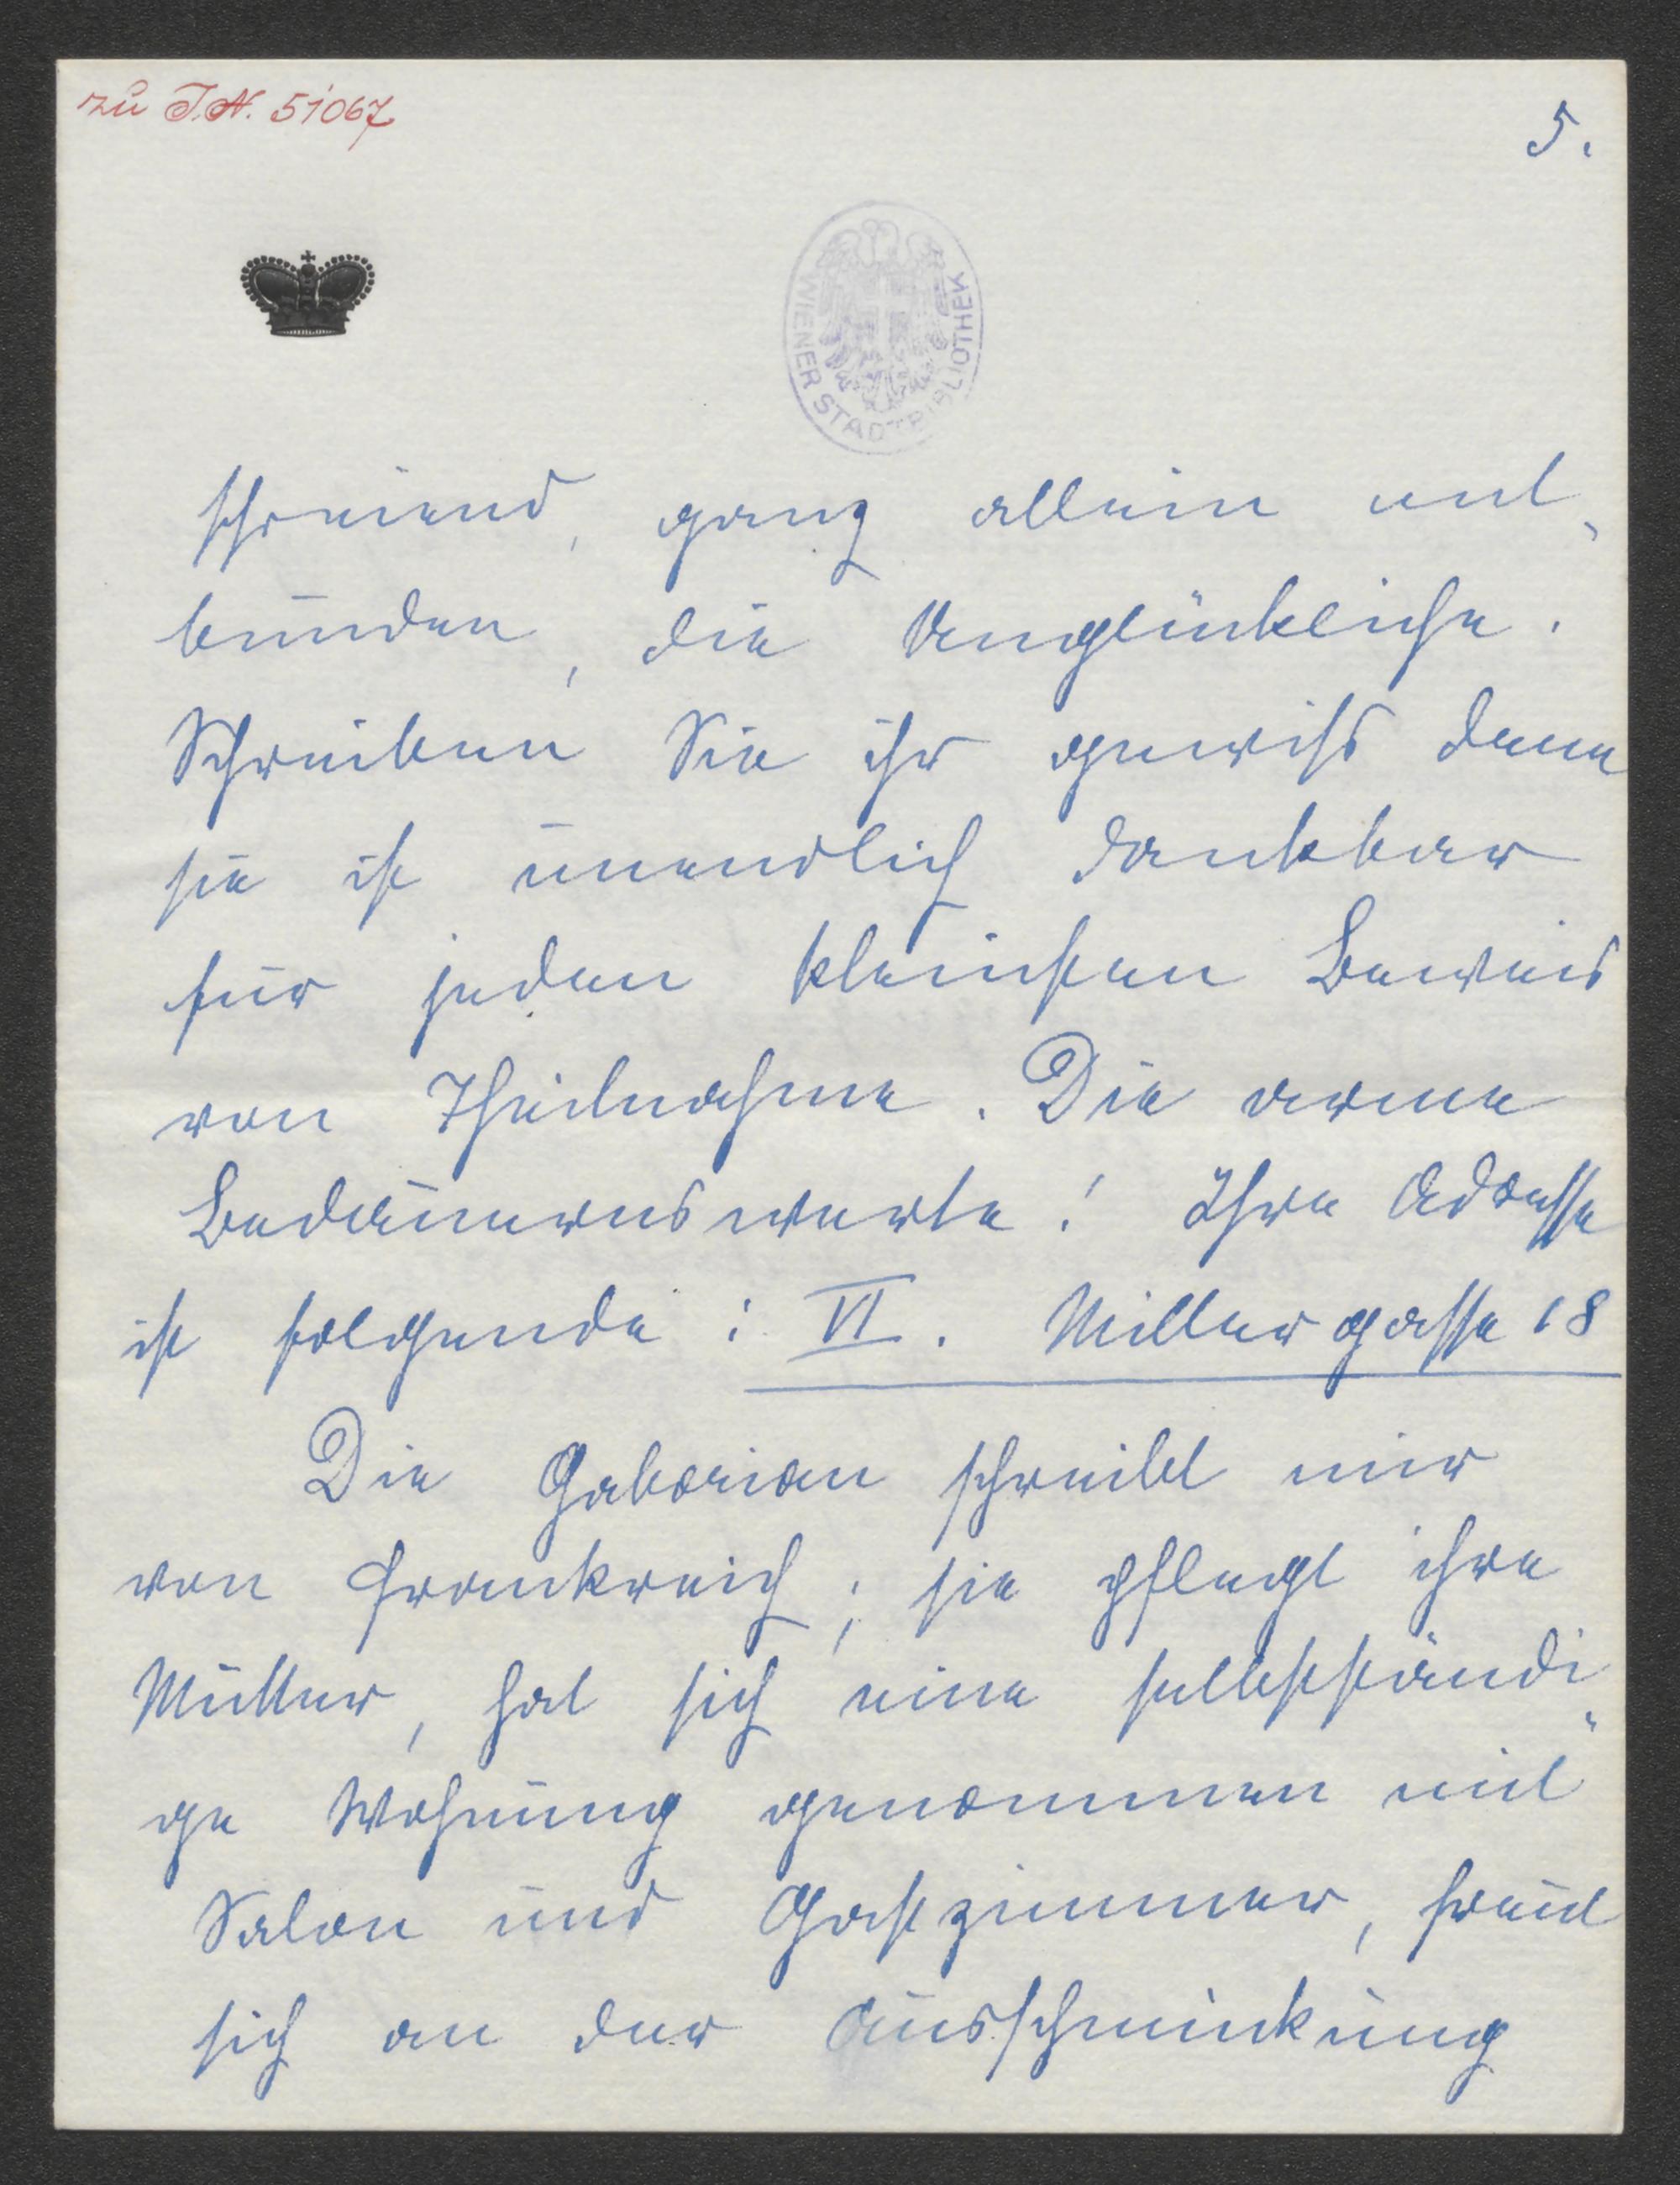 zu I.N. 51067
5.
WIENER STADTBIBLIOTHEK
schreiend, ganz allein ent-
bunden, die Unglückliche.
Schreiben Sie ihr gewiss denn
sie ist unendlich dankbar
für jeden kleinsten Beweis
von Theilnahme. Die arme
Bedauernswerte! Ihre Adresse
ist folgende: VI. Millergasse 18
Die Gaborian schreibt mir
von Frankreich; sie pflegt ihre
Mutter, hat sich eine selbstständi-
ge Wohnung genommen mit
Salon und Gastzimmer, freut
sich an der Ausschmückung